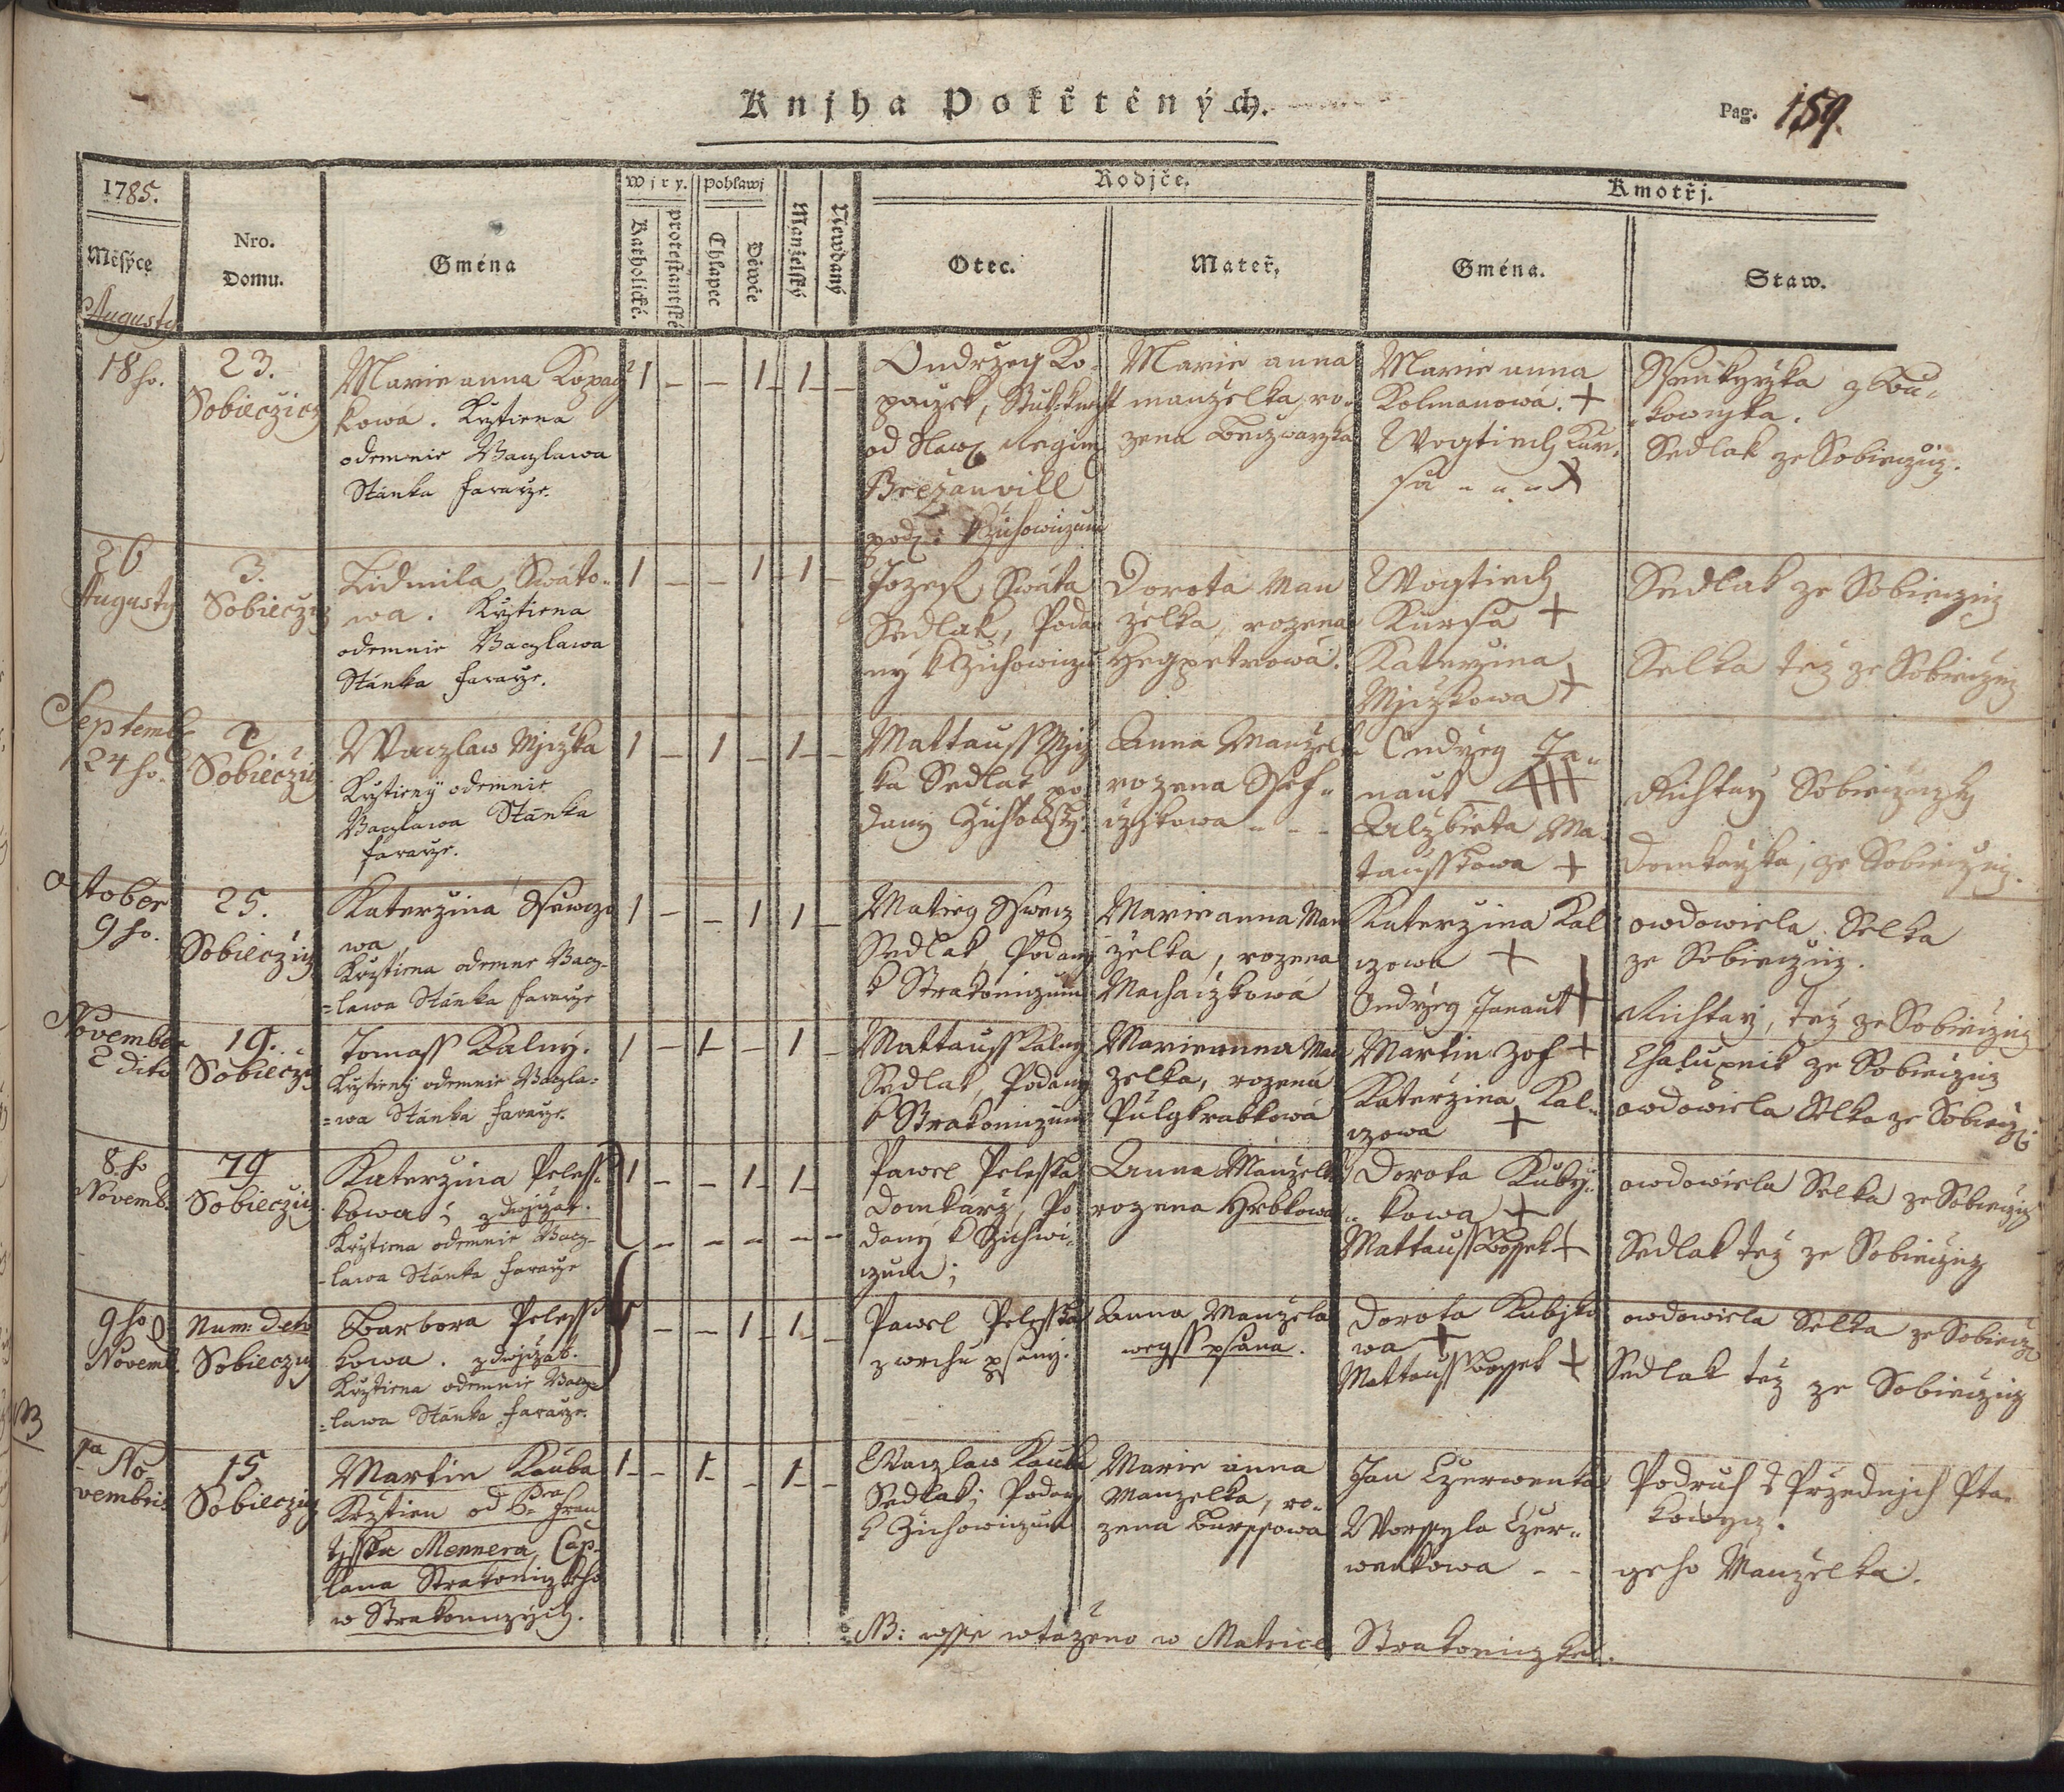 Knjha Pokřtěných.
Pag. 159.
1785.
Měsýce
Augusty
Nro.
Domu.
Gména
Wjry.
Katholické.
protestantské
Pohlawj
Chlapec
Děwče
Manželský
Newdaný
Rodjče.
Otec.
Mateř.
Kmotřj.
Gména.
Staw.
18 ho.
23.
Sobieczicz
Marie anna Kopacz
kowa. Krztiena
odemnie Vaczlawa
Stánka fararze.
1 – – 1 – 1 –
Ondrzeg Ko-
paczek,
od Slaw: Regim:
Brezanvill
pod: k Žichowiczum
Marie anna
manzelka, ro-
zena
Marie anna
Kolmanowá. +
Wogtiech Kur-
sa - - - X
Ssenkyrzka
Sedlak ze Sobieczicz.
26
Augusty
3.
Sobieczicz
Lidmila Swáto-
wa. Krztiena
odemnie Vaczlawa
Stánka fararze.
1 – – 1 – 1 –
Jozef Swáta
Sedlak, Poda-
ný k Zichowiczu
Dorota Man
zelka, rozena
Hegpetrowá.
Wogtiech
Kursa +
Katerzina
Mziczkowa +
Sedlak ze Sobieczicz
Selka téz ze Sobieczicz
Septemb:
24 ho.
2
Sobieczicz
Waczlaw Mziczka
Krztieny odemnie
Vaczlawa Stánka
fararze.
1 – 1 – 1 –
Mattauss Mziz
ka Sedlak po
dany
Anna Manzelk
rozena Ssef-
czikowa - - -
Ondrzeg Ja-
naut
Alzbieta Ma-
tausskowa +
Richtarz Sobieczicky
Domkarzka, ze Sobieczicz.
October
9 ho.
25.
Sobieczicz
Katerzina Ssewczo
wa,
Krztiena odemne Vacz-
=lawa Stánka fararze
1 – – 1 1 –
Matieg Sswecz
Sedlak, Podany
k Strakoniczum
Marie anna Man
zelka, rozena
Machaczkowá
Katerzina Kal
czowa +
Ondrzeg Janaut +
owdowiela Selka
ze Sobieczicz.
Richtarz, téz ze Sobieczicz
November
2 dito
19.
Sobieczicz
Tomass Kalny.
Krztieny odemnie Vaczla=
=wa Stánka fararze.
1 – 1 – 1 –
Mattauss Kalny
Sedlak, Podany
k Strakoniczum
Marie anna Man
zelka, rozena
Pulgkrabkowá
Martin Zof +
Katerzina Kal-
czowa +
Chalupnik ze Sobieczicz
owdowiela Selka ze Sobiecz:
8 ho
Novemb.
79
Sobieczicz
Katerzina Peless-
kowa; zdwogczat.
Krztiena odemnie Vacz-
-lawa Stánka fararze
1 – – 1 – 1 –
– – – – –
Pawel Pelesska
Domkarz, Po-
daný k Zichowi-
czum;
Anna Manzelk
rozena Hrbkowa
Dorota Kuby-
- kowa +
Mattauss Bossek +
owdowiela Selka ze Sobieczicz
Sedlak téz ze Sobieczicz
9 ho
Novemb.
Num: deto
Sobieczicz
Barbora Peless-
kowa. zdwogczat.
Krztiena odemnie Vacz=
=lawa Stánka fararze.
1 – – 1 – 1 –
Pawel Pelesska
z wrchu psaný.
Anna Manzela
wegss psána.
Dorota Kubjko
wa +
Mattauss Bossek +
owdowiela Selka ze Sobiecz
Sedlak téz ze Sobieczicz
NB
No-
vembris
15
Sobieczicz
Martin Kauba
Krztien od
Mennera, Cap-
lana Strakoniczkeho
w Strakonniczych.
1 – – 1 – – 1 –
Waczlaw Kauba
Sedlak; Podany
k Zichowiczum
Marie anna
Manzelka, ro-
zena Burssowa
Jan Czerwenka
Worssyla Czer-
wenkowa - -
Podruh z Przednjch Pta-
kowicz.
geho Manzelka.
NB: wsse wtazeno w Matrice Strakoniczkej.